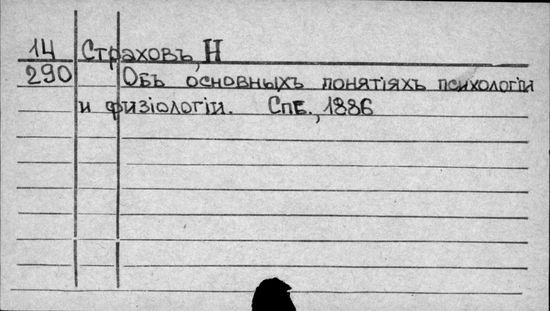 14 Страховъ, Н
290 Объ основныхъ понятіяхъ психологіи
и физіологіи. Спб., 1886